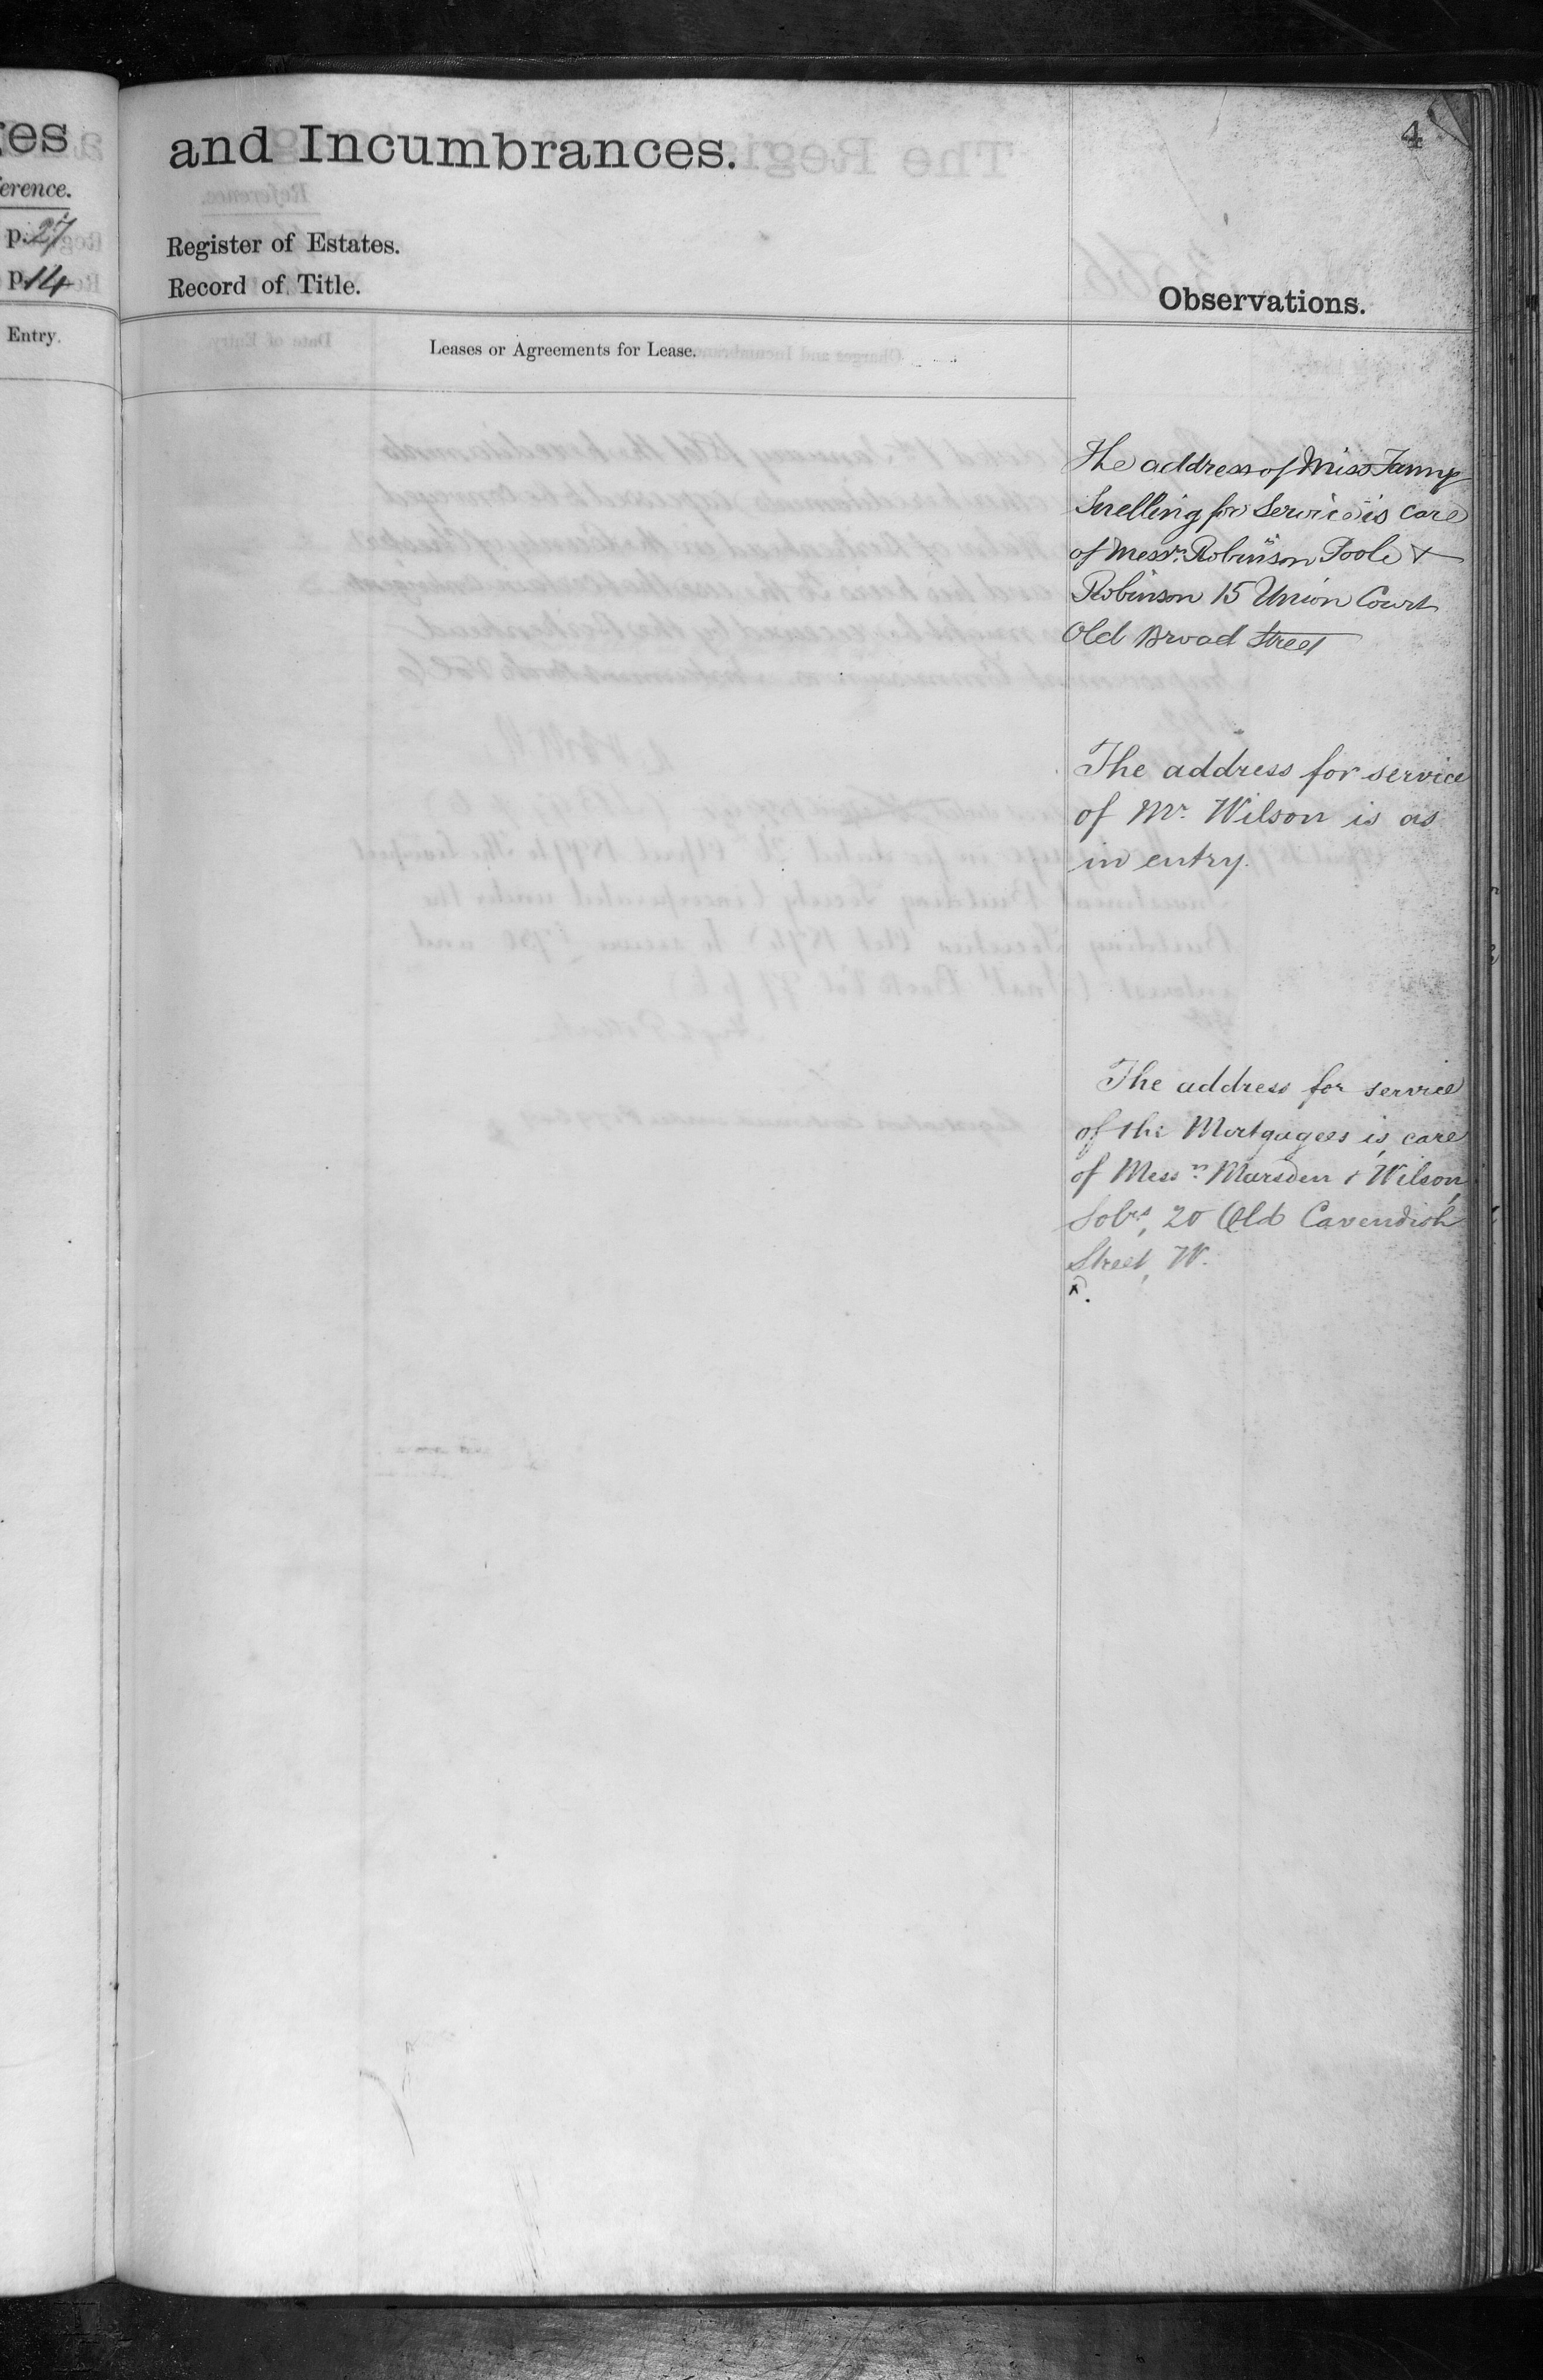 ges
erence.
p. 27
p. 14
Entry.
and Incumbrances.
4
Register of Estates.
Record of Title.
Observations.
Leases or Agreements for Lease.
The address of Miss Fanny
Snelling for Service is care
of Messrs. Robinson Poole &
Robinson 15 Union Court
Old Broad Street
The address for service
of Mr. Wilson is as
in entry.
The address for service
of the Mortgagees is care
of Messrs. Marsden & Wilson,
Solrs, 20 Old Cavendish
Street, W.